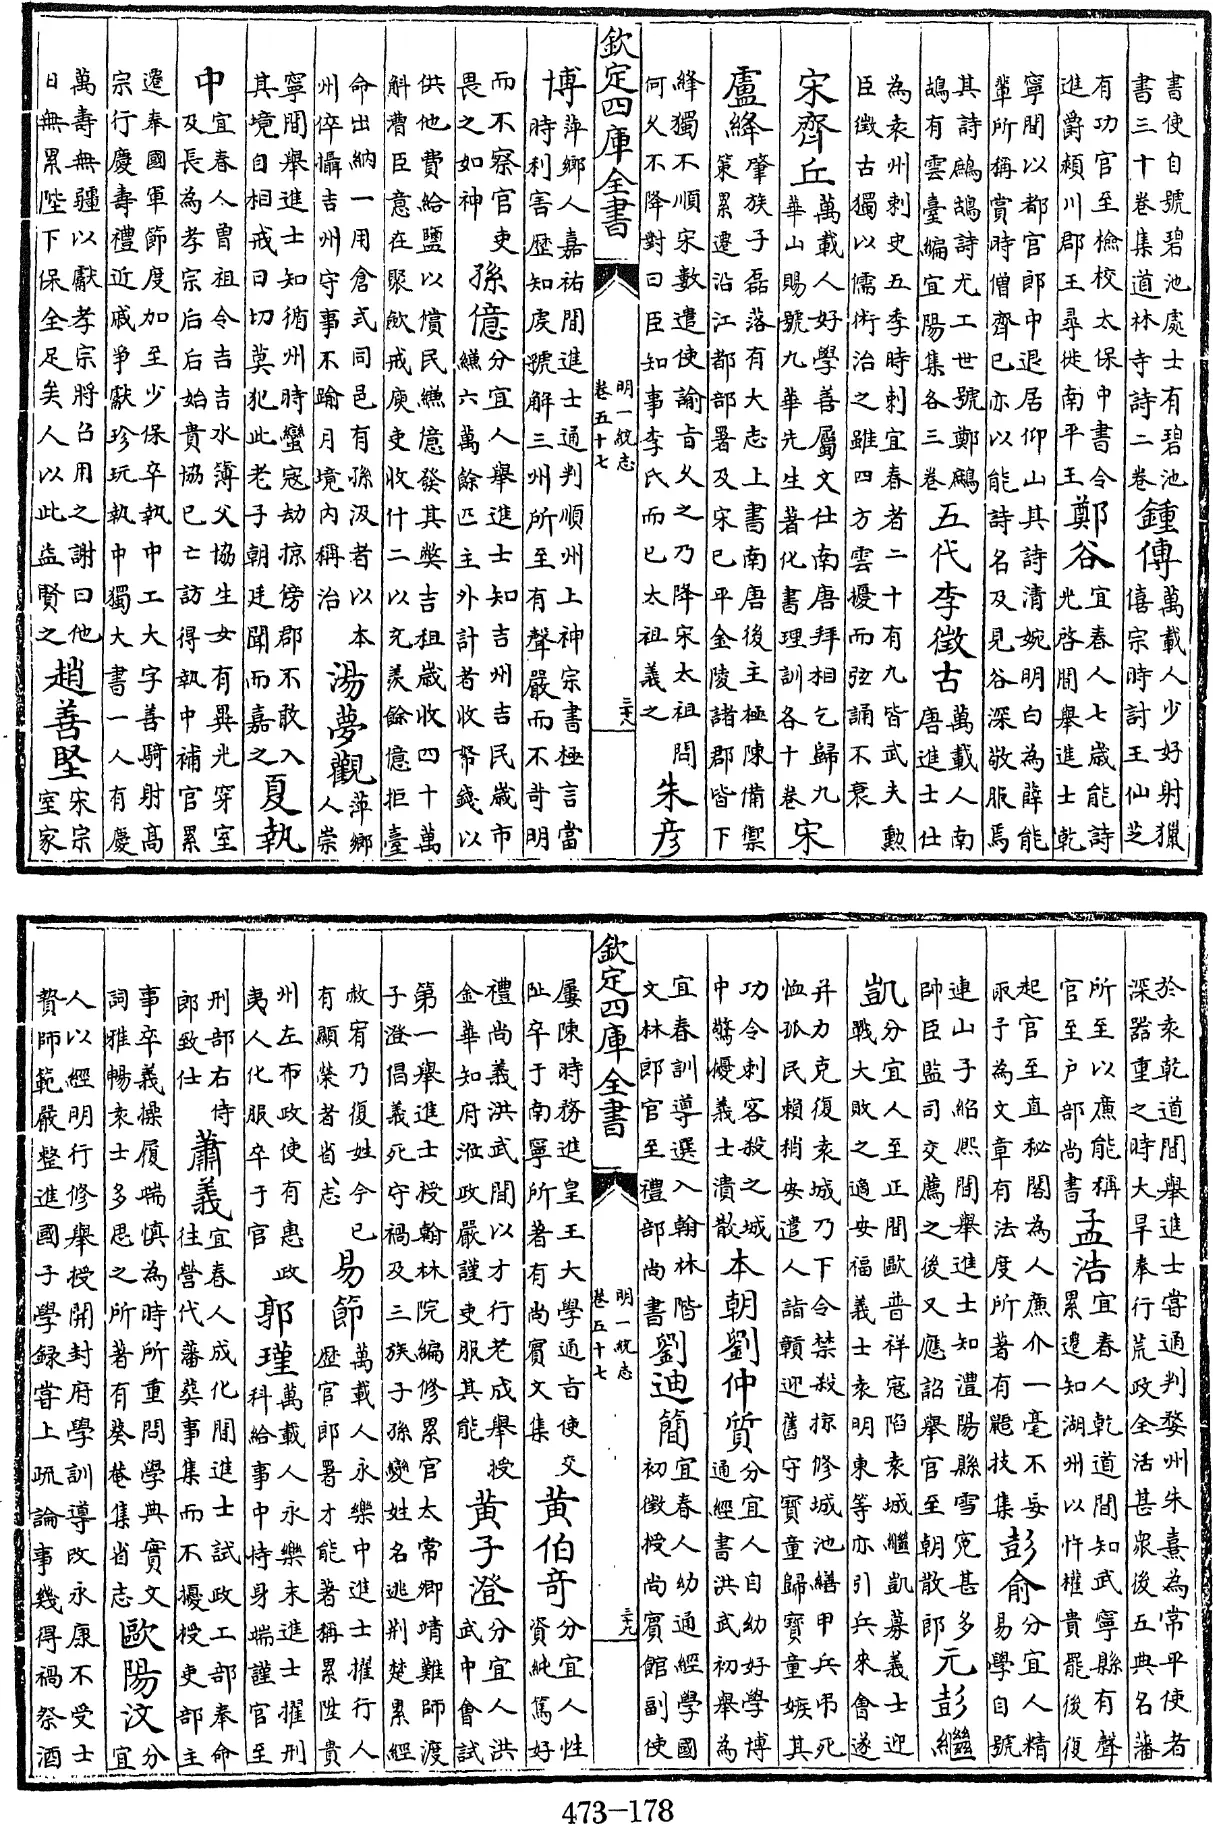 書使自號碧池處士有碧池書三十卷集道林寺詩二卷鍾傳萬載人少好射獵僖宗時討王仙芝
有功官至檢校太保中書令進爵潁川郡王尋徙南平王鄭谷宜春人七歲能詩光啓間舉進士乾
寧間以都官郎中退居仰山其詩清婉明白為薛能輩所稱賞時僧齊己亦以能詩名及見谷深敬服焉
其詩鷓鴣詩尤工世號鄭鷓鴣有雲臺編宜陽集各三卷五代李徵古萬載人南唐進士仕
為袁州刺史五季時刺宜春者二十有九皆武夫勲臣徵古獨以儒術治之雖四方雲擾而弦誦不衰
宋齊丘萬載人好學善屬文仕南唐拜相乞歸九華山賜號九華先生著化書理訓各十卷宋
盧絳肇族子磊落有大志上書南唐後主極陳備禦策累遷沿江都部署及宋已平金陵諸郡皆下
絳獨不順宋數遣使諭旨久之乃降宋太祖問何乆不降對曰臣知事李氏而已太祖義之朱彦
欽定四庫全書
明一統志
卷五十七
三十八
博萍鄉人嘉祐間進士通判順州上神宗書極言當時利害歷知虔號解三州所至有聲嚴而不苛明
而不察官吏畏之如神孫億分宜人舉進士知吉州吉民歲市縑六萬餘匹主外計者收帑錢以
供他費給鹽以償民縑億發其獘吉租歲收四十萬斛漕臣意在聚歛戒庾吏收什二以充羨餘億拒臺
命出納一用倉式同邑有孫汲者以本州倅攝吉州守事不踰月境內稱治湯夢觀萍鄉人崇
寧間舉進士知循州時蠻寇劫掠傍郡不敢入其境自相戒曰切莫犯此老子朝廷聞而嘉之夏執
中宜春人曾祖令吉吉水簿父協生女有異光穿室及長為孝宗后后始貴協已亡訪得執中補官累
遷奉國軍節度加至少保卒執中工大字善騎射髙宗行慶壽禮近戚爭獻珍玩執中獨大書一人有慶
萬壽無疆以獻孝宗將召用之謝曰他日無累陛下保全足矣人以此益賢之趙善堅宋宗室家
於袁乾道間舉進士嘗通判婺州朱熹為常平使者深器重之時大旱奉行荒政全活甚衆後五典名藩
所至以亷能稱官至户部尚書孟浩宜春人乾道間知武寧縣有聲累遷知湖州以忤權貴罷後復
起官至直秘閣為人亷介一毫不妄取予為文章有法度所著有鼯技集彭俞分宜人精易學自號
連山子紹熙間舉進士知澧陽縣雪寃甚多帥臣監司交薦之後又應詔舉官至朝散郎元彭繼
凱分宜人至正間歐普祥寇陷袁城繼凱募義士迎戰大敗之適安福義士袁明東等亦引兵來會遂
幷力克復袁城乃下令禁殺掠修城池繕甲兵弔死恤孤民賴稍安遣人詣贛迎舊守寳童歸寳童嫉其
功令刺客殺之城中驚擾義士潰散本朝劉仲質分宜人自幼好學博通經書洪武初舉為
宜春訓導選入翰林階文林郎官至禮部尚書劉迪簡宜春人幼通經學國初徵授尚賓館副使
欽定四庫全書
明一統志
卷五十七
三十九
屢陳時務進皇王大學通旨使交阯卒于南寧所著有尚賓文集黄伯奇分宜人性資純篤好
禮尚義洪武間以才行老成舉授金華知府涖政嚴謹吏服其能黄子澄分宜人洪武中會試
第一舉進士授翰林院編修累官太常卿靖難師渡子澄倡義死守禍及三族子孫變姓名逃荆楚累經
赦宥乃復姓今已有顯榮者省志易節萬載人永樂中進士擢行人歴官郎署才能著稱累陞貴
州左布政使有惠政夷人化服卒于官郭瑾萬載人永樂末進士擢刑科給事中恃身端謹官至
刑部右侍郎致仕蕭義宜春人成化間進士試政工部奉命往營代藩葬事集而不擾授吏部主
事卒義操履端慎為時所重問學典實文詞雅暢袁士多思之所著有葵菴集省志歐陽汶分宜
人以經明行修舉授開封府學訓導改永康不受士贄師範嚴整進國子學録嘗上疏論事幾得禍祭酒
473-178